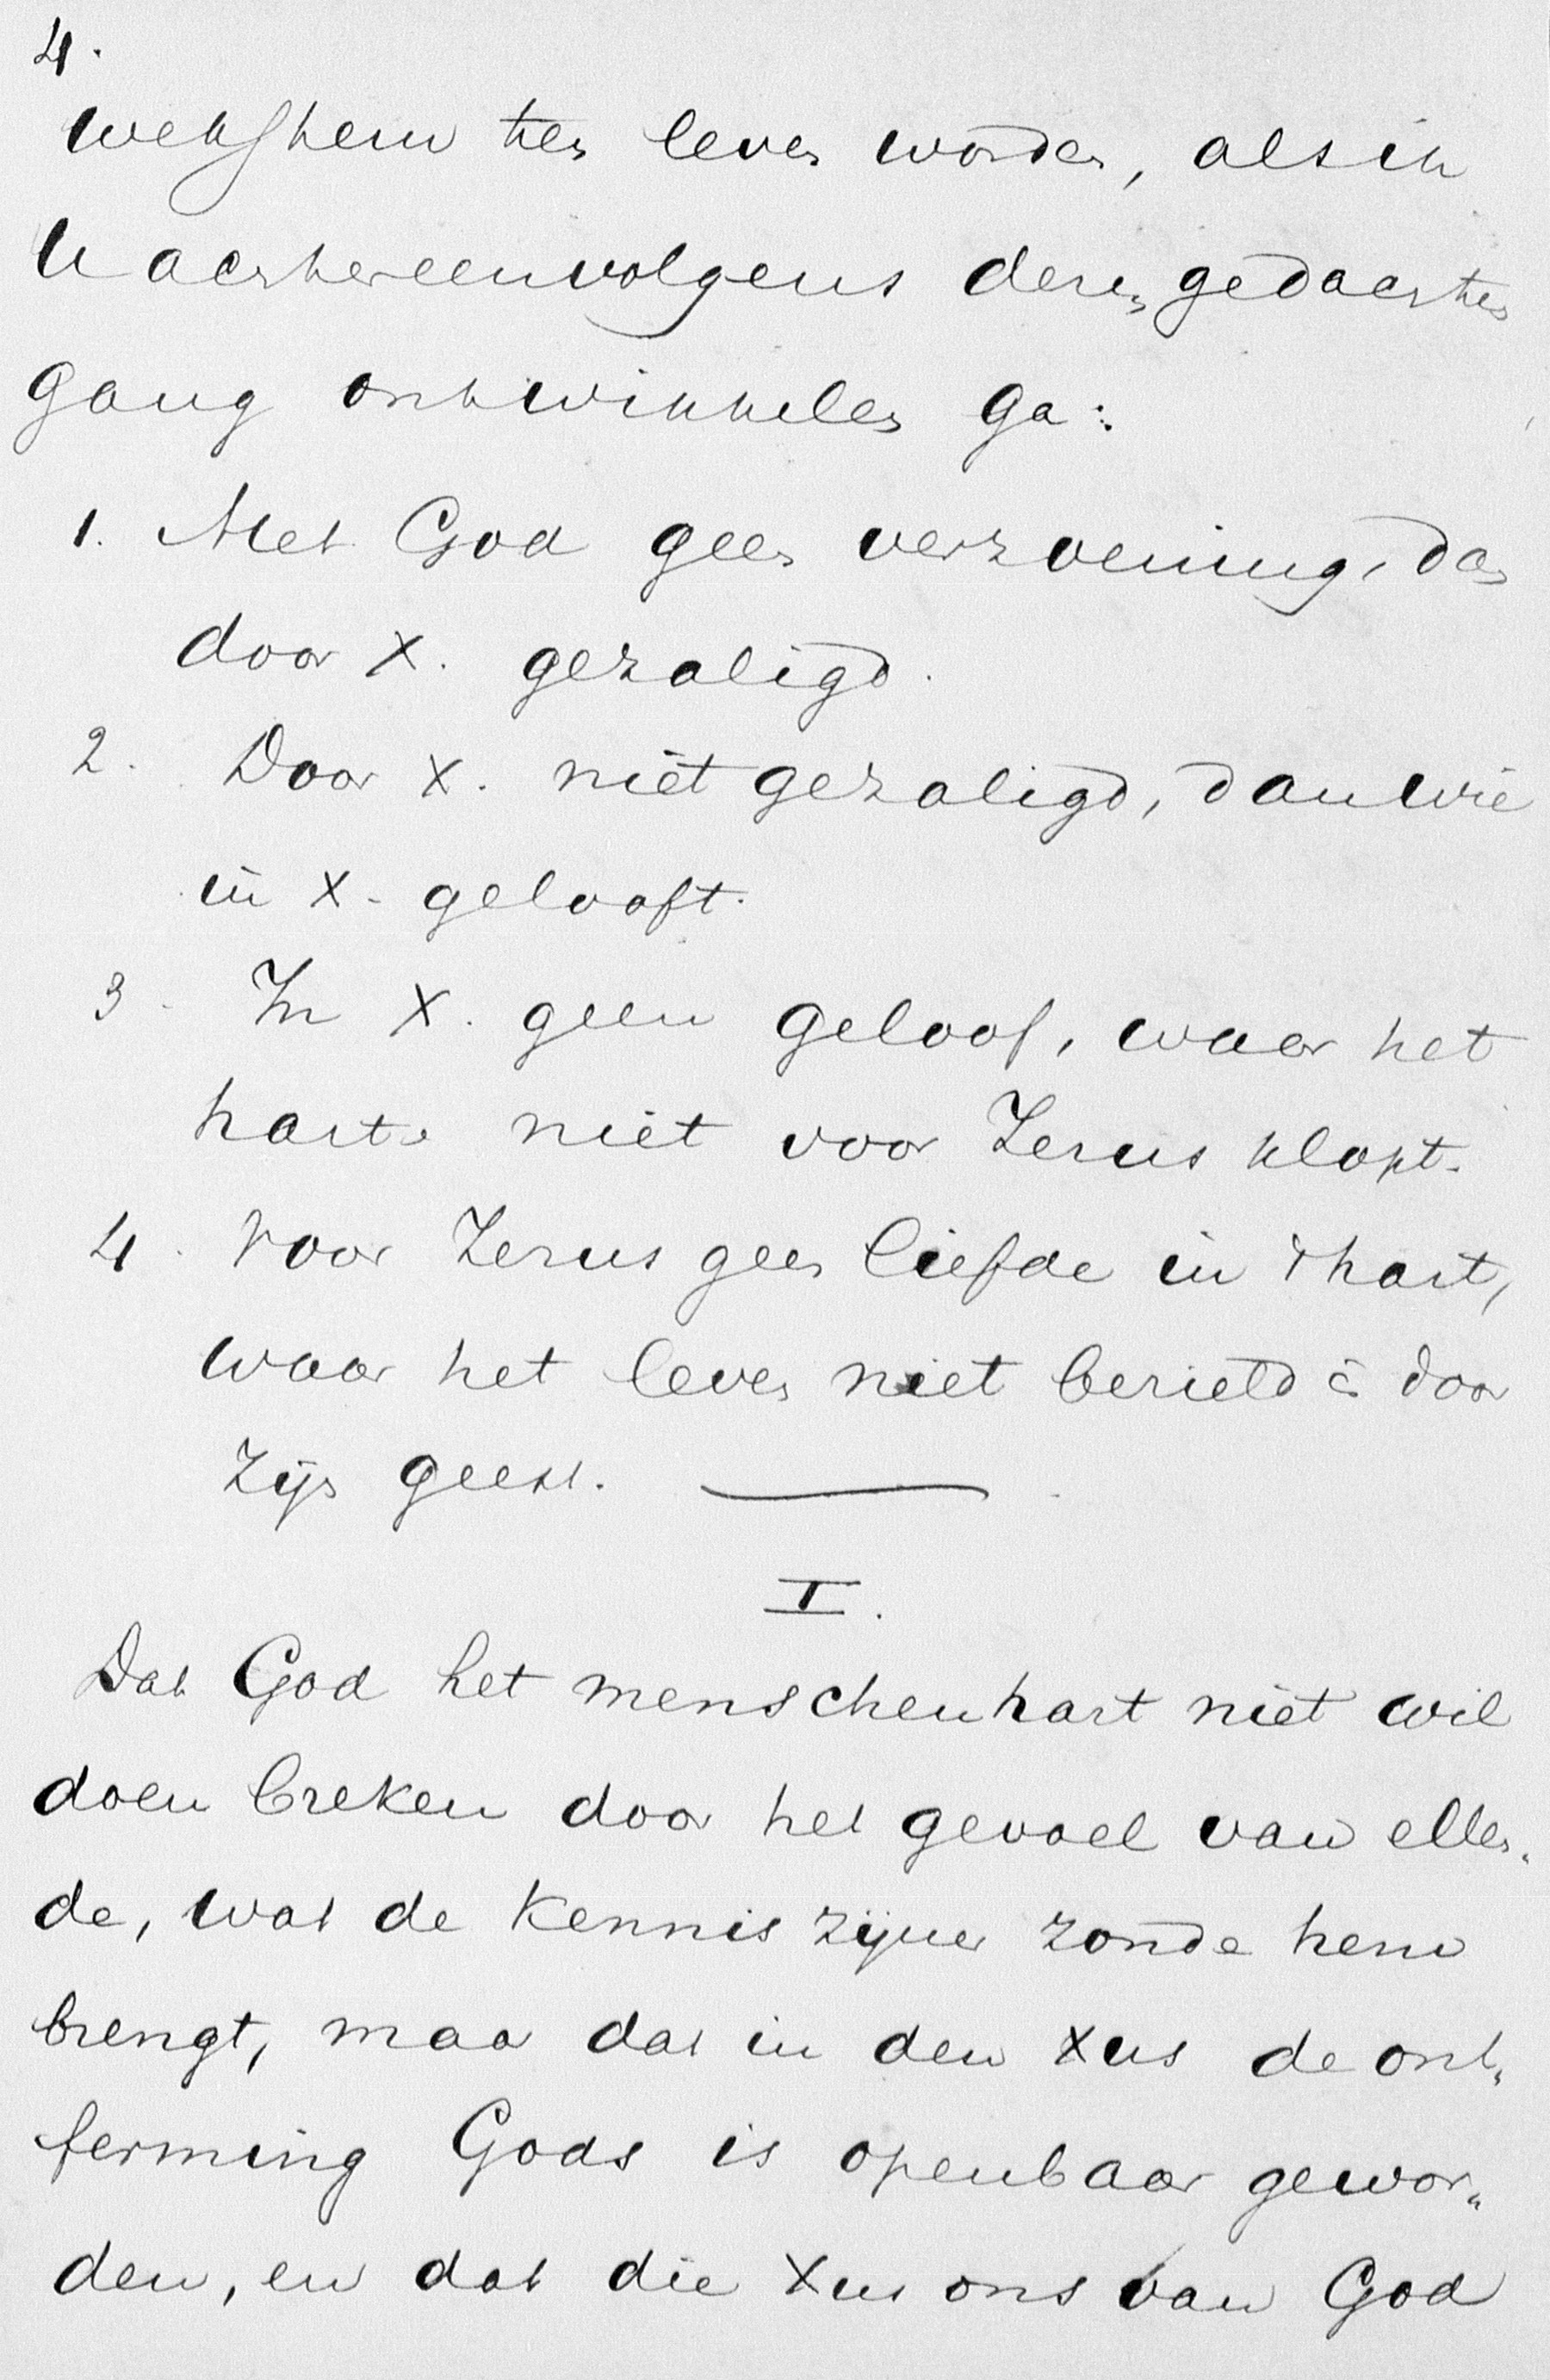 4.
wekk hem ten leven worden, als ik
U achtereenvolgens dezen gedachten
gang ontwikkelen ga:
1. Met God geen verzoening, dan
door X. gezaligd.
2. Door X. niet gezaligd, dan wie
in X. gelooft.
3. In X. geen geloof, waar het
harte niet voor Jezus klopt.
4. Voor Jezus geen liefde in 't hart,
waar het leven niet bezield is door
zijn geest. —
I.
Dat God het menschenhart niet wil
doen breken door het gevoel van ellen„
de, wat de kennis zijner zonde hem
brengt, maar dat in den Xus de ont„
ferming Gods is openbaar gewor„
den, en dat die Xus ons van God